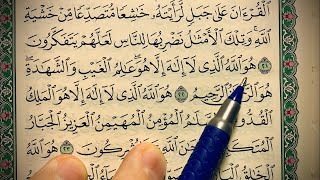 ٱلْقُرْءَانَ عَلَىٰ جَبَلٍ لَّرَأَيْتَهُۥ خَٰشِعًا مُّتَصَدِّعًا مِّنْ خَشْيَةِ
ٱللَّهِ وَتِلْكَ ٱلْأَمْثَٰلُ نَضْرِبُهَا لِلنَّاسِ لَعَلَّهُمْ يَتَفَكَّرُونَ
٢١ هُوَ ٱللَّهُ ٱلَّذِى لَآ إِلَٰهَ إِلَّا هُوَ عَٰلِمُ ٱلْغَيْبِ وَٱلشَّهَٰدَةِ
هُوَ ٱلرَّحِيمُ ٢٢ هُوَ ٱللَّهُ ٱلَّذِى لَآ إِلَٰهَ إِلَّا هُوَ ٱلْمَلِكُ
ٱلْقُدُّ ٱلْمُؤْمِنُ ٱلْمُهَيْمِنُ ٱلْعَزِيزُ ٱلْجَبَّارُ
يُشْرِكُونَ ٢٣ هُوَ ٱللَّهُ
ٱلْخَٰلِقُ